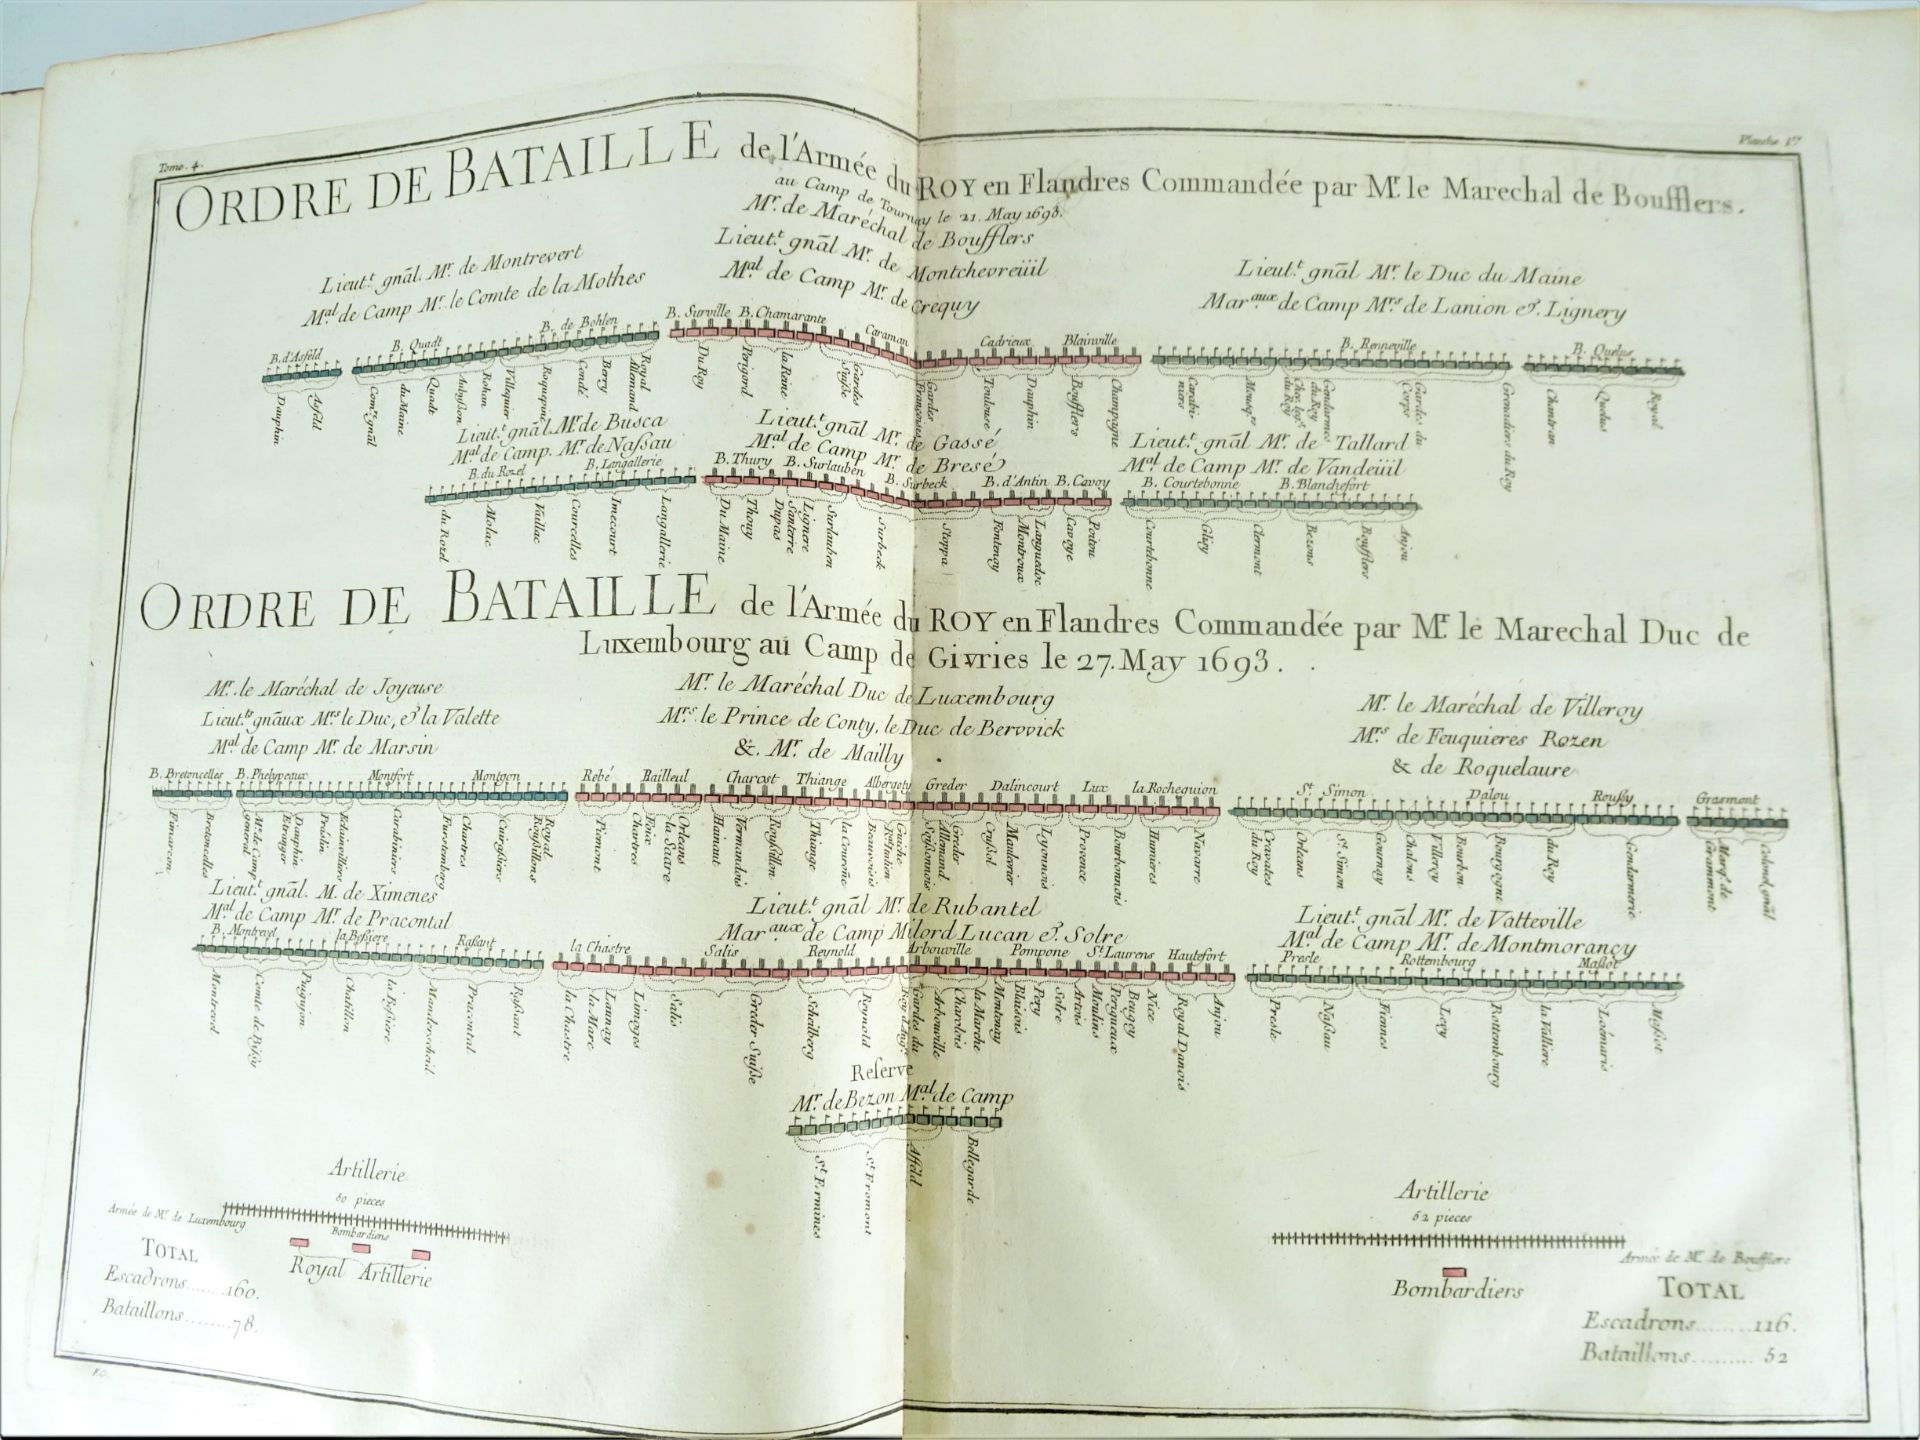 Tome. 4.
Planche 1re
ORDRE DE BATAILLE de l'Armée du ROY en Flandres Commandée par Mr. le Marechal de Boufflers.
au Camp de Tournay le 21. May 1693.
Mr. de Maréchal de Boufflers
Lieut.t gnãl Mr. de Montchevreüil
Mal. de Camp Mr. de Crequy
Lieut.t gnãl. Mr. de Montrevert
Mal. de Camp Mr. le Comte de la Mothes
Lieut.t gnãl Mr. le Duc du Maine
Maraux de Camp Mrs. de Lanion & Lignery
B. d'Asfeld B. Quadt B. de Bohlen B. Surville B. Chamarante Caraman Cadrieux Blainville B. Renneville B. Quelus
Dauphin Asfeld Comre. gnãl du Maine Quadt Aubusson Rohan Villequier Roquepine Condé Berry Royal Allemand Du Roy Perigord la Reine Gardes Suisse Gardes Françoises Toulouse Dauphin Boufflers Champagne Carabiniers Mousqre. Chev. legrs. du Roy Gendarmes du Roy Gardes du Corps Grenadiers du Roy Chantran Quelus Royal
Lieut.t gnãl. Mr. de Busca
Mal. de Camp. Mr. de Naßau
Lieut.t gnãl Mr. de Gassé
Mal. de Camp Mr. de Bresé
Lieut.t gnãl Mr. de Tallard
Mal. de Camp Mr. de Vandeüil
B. du Rozel B. Langallerie B. Thury B. Surlauben B. Surbeck B. d'Antin B. Cavoy B. Courtebonne B. Blanchefort
du Rozel Molac Vaillac Courcelles Imecourt Langallerie Du Maine Thouy Dupas Santerre Lignere Surlauben Surbeck Stoppa Fontenoy Montroux Languedoc Cavoye Poitou Courtebonne Glisy Clermont Bezons Boufflers Anjou
ORDRE DE BATAILLE de l'Armée du ROY en Flandres Commandée par Mr. le Marechal Duc de
Luxembourg au Camp de Givries le 27. May 1693.
Mr. le Maréchal de Joyeuse
Lieut.ts gnãux Mrs le Duc, & la Valette
Mal. de Camp Mr. de Marsin
Mr. le Maréchal Duc de Luxembourg
Mrs. le Prince de Conty, le Duc de Bervvick
&. Mr. de Mailly
Mr. le Maréchal de Villeroy
Mrs. de Feuquieres Rozen
& de Roquelaure
B. Bretoncelles B. Phelypeaux Montfort Montgon Rebé Bailleul Charost Thiange Albergoty Greder Dalincourt Lux la Rocheguion St. Simon Dalou Roussy Grasmont
Fimarcon Bretoncelles Mr. de Camp general Dauphin Etranger Praslin Edainvilliers Carabiniers Furstemberg Chartres Cuirassiers Royal Roussillons Piemont Chartres Foix la Sarre Orleans Hainaut Vermandois Roussillon Thiange la Couroñe Beauvoisis Rl. Italien Guiche Soissonois Allemand Greder Crussol Maulevrier Lyonnois Provence Bourbonnois Humieres Navarre Cravates du Roy Orleans St. Simon Gournay Chalons Villeroy Bourbon Bourgogne du Roy Gendarmerie Marqs. de Grammont Colonel gnãl
Lieut.t gnãl. M. de Ximenes
Mal. de Camp Mr. de Pracontal
Lieut.t gnãl Mr. de Rubantel
Maraux de Camp Milord Lucan & Solre
Lieut.t gnãl Mr. de Vatteville
Mal. de Camp Mr. de Montmorancy
B. Montrevel la Bessiere Rassant la Chastre Salis Reynold Arbouville Pompone St. Laurens Hautefort Presle Rottembourg Massot
Montrevel Comte de Bissy Puiguyon Chatillon la Bessiere Manderscheid Pracontal Rassant la Chastre la Mare Launay Limoges Salis Greder Suisse Scheilberg Reynold Gardes du Roy d'Angre. Arbouville Charolois la Marche Montenay Blaisois Pery Solre Artois Moulins Pergueux Beugey Nice Royal Danois Anjou Presle Naßau Fiennes Levy Rottembourg la Valliere Loémaris Maßot
Reserve
Mr. de Bezon Mal. de Camp
St. Ermines St. Fromont Asfeld Bellegarde
Artillerie
60 pieces
Armée de Mr. de Luxembourg
Bombardiens
Royal Artillerie
TOTAL
Escadrons........160.
Bataillons........78.
Artillerie
62 pieces
Armée de Mr. de Boufflers
Bombardiers
TOTAL
Escadrons........116.
Bataillons......... 52